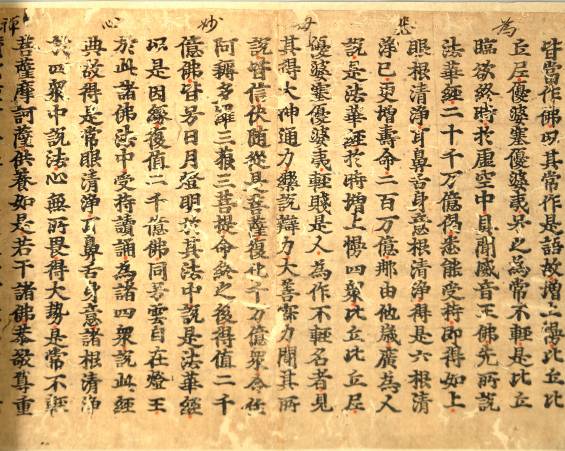 為 悲 母 妙 心 禪
皆當作佛以其常作是語故增上慢比丘比
丘尼優婆塞優婆夷号之為常不輕是比丘
臨欲終時於虛空中具聞威音王佛先所說
法華經二十千万億偈悉能受持即得如上
眼根清淨耳鼻舌身意根清淨得是六根清
淨已更增壽命二百万億那由他歲廣為人
說是法華經於時增上慢四衆比丘比丘尼
優婆塞優婆夷輕賤是人為作不輕名者見
其得大神通力樂說辯力大善寂力聞其所
說皆信伏隨從是菩薩復化千万億衆令住
阿耨多羅三藐三菩提命終之後得值二千
億佛皆号日月燈明於其法中說是法華經
以是因緣復值二千億佛同号雲自在燈王
於此諸佛法中受持讀誦為諸四衆說此經
典故得是常眼清淨耳鼻舌身意諸根清淨
於四衆中說法心無所畏得大勢是常不輕
菩薩摩訶薩供養如是若干諸佛恭敬尊重